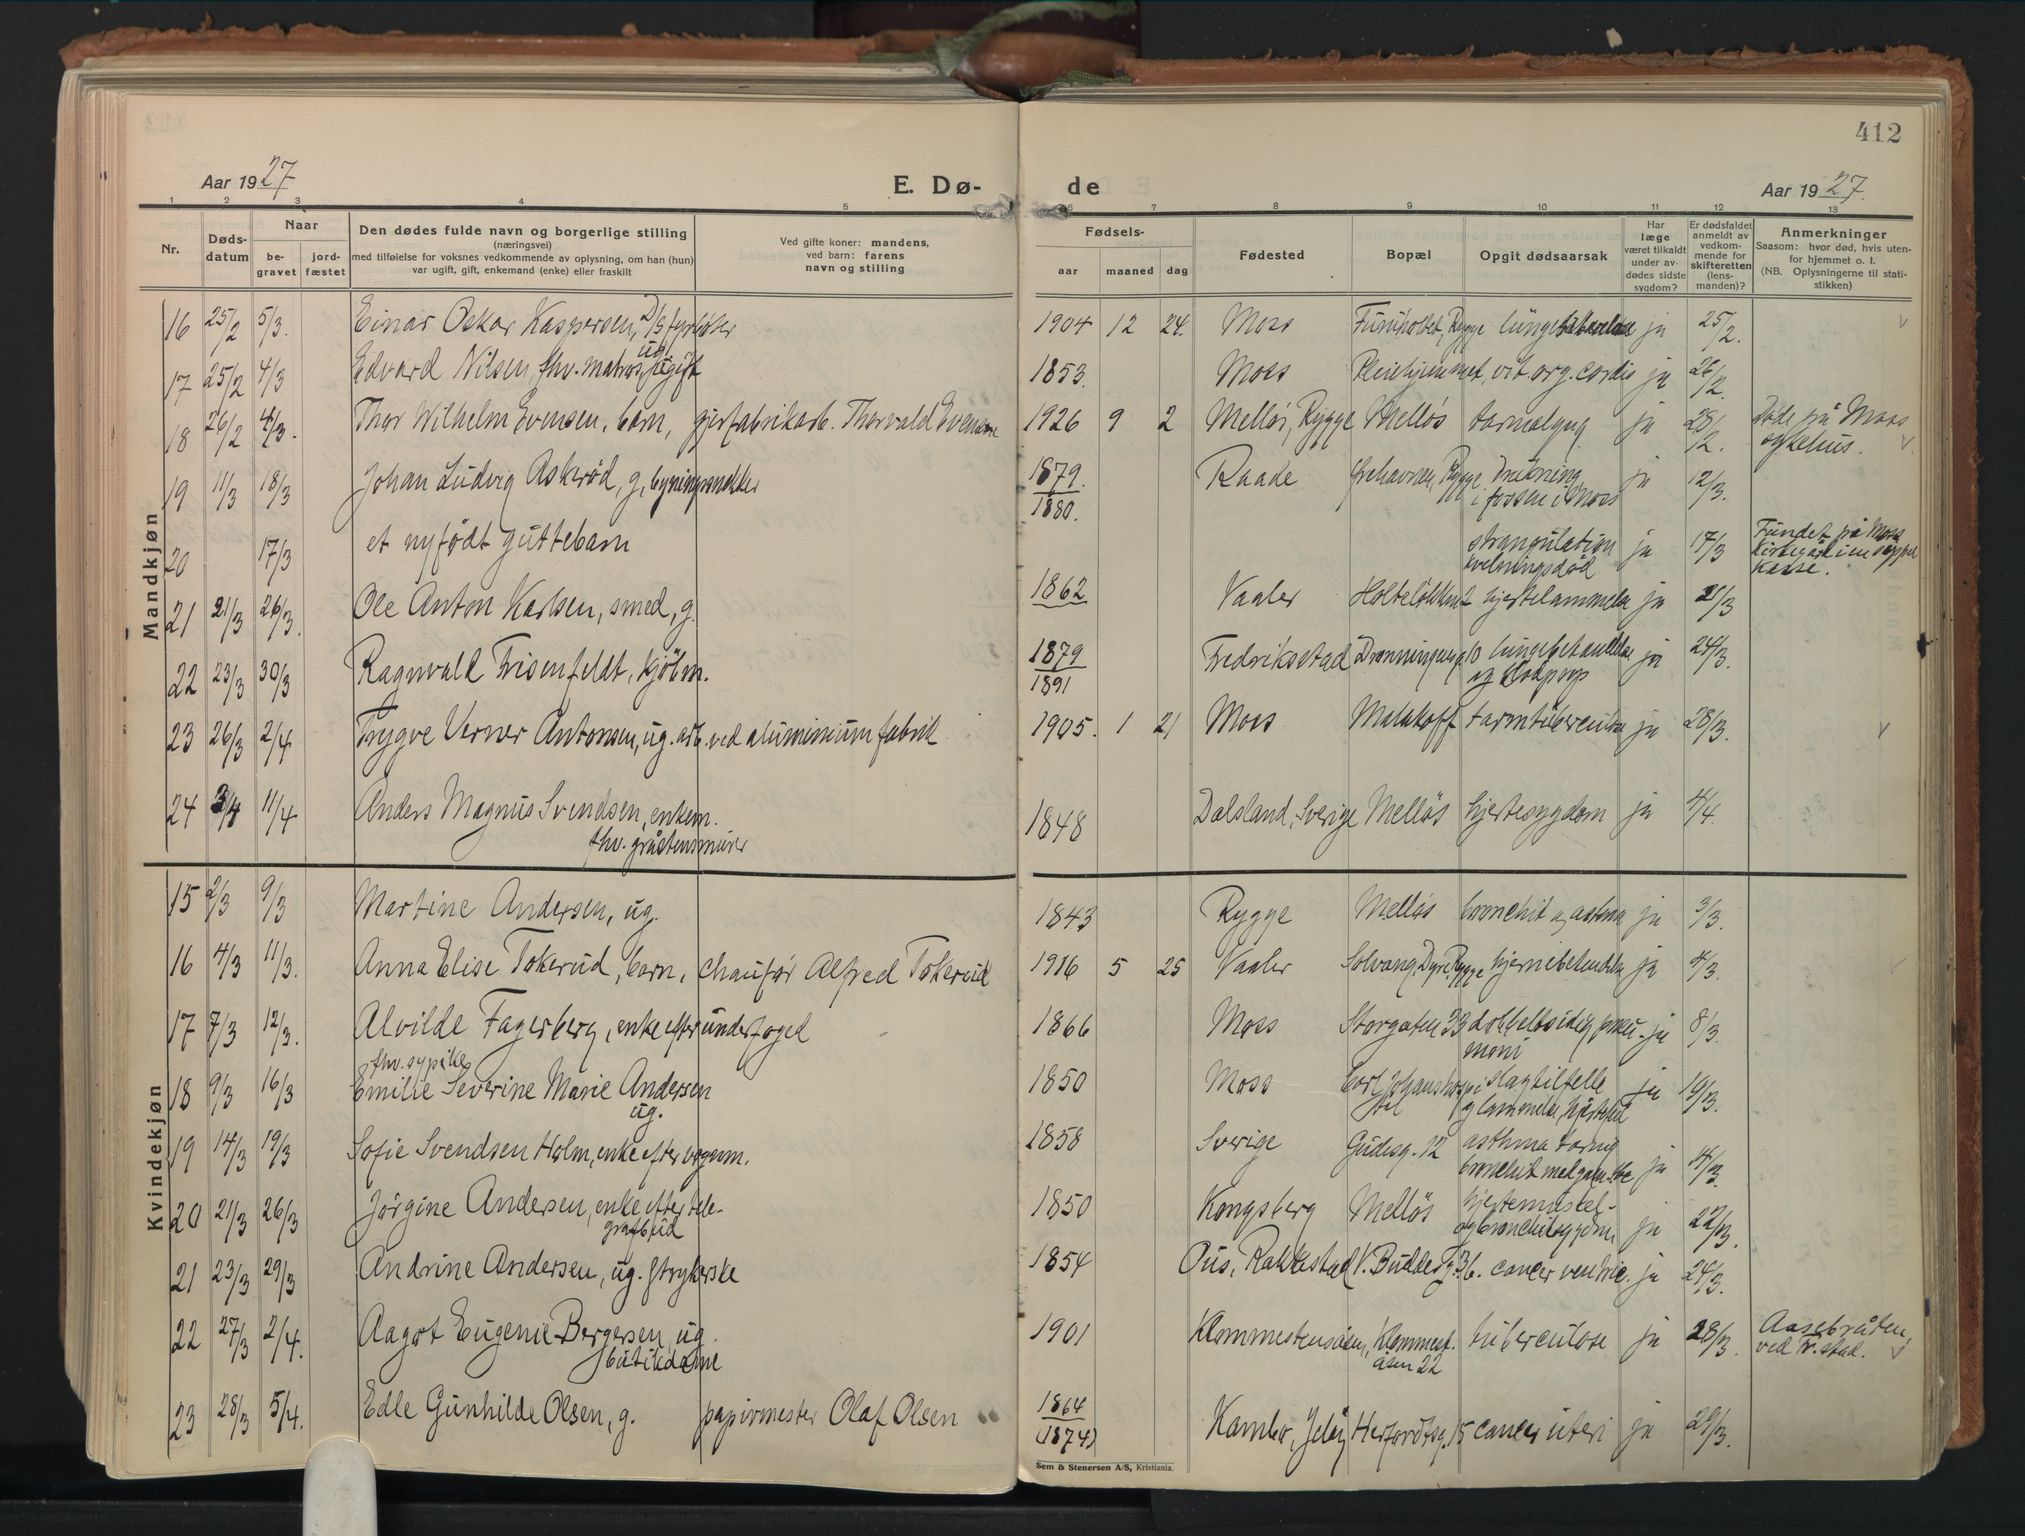 412
Aar 1927
E. Dø-
de
Aar 1927.
1 2 3 4 5 6 7 8 9 10 11 12 13
Nr.
Døds-
datum
Naar
be-
gravet
jord-
fæstet
Den dødes fulde navn og borgerlige stilling
(næringsvei)
med tilføielse for voksnes vedkommende av oplysning, om han (hun)
var ugift, gift, enkemand (enke) eller fraskilt
Ved gifte koner: mandens,
ved barn: farens
navn og stilling
Fødsels-
aar maaned dag
Fødested
Bopæl
Opgit dødsaarsak
Har
læge
været tilkaldt
under av-
dødes sidste
sygdom?
Er dødsfaldet
anmeldt av
vedkom-
mende for
skifteretten
(lens-
manden)?
Anmerkninger
Saasom: hvor død, hvis uten-
for hjemmet o. l.
(NB. Oplysningerne til stati-
stikken)
Mandkjøn
16 25/2 5/3. Einar Oskar Kaspersen, D/S fyrbøter 1904 12 24. Moss Rygge ja 25/2.
ug.
17 25/2 4/3 Edvard Nilsen, fhv. matros, ugift 1853. Moss Pleiehjemmet, vit. org. cordis ja 26/2.
18 26/2 4/3. Thor Wilhelm Evensen, barn, Thorvald Evensen 1926 9 2 Melløs, Rygge Melløs ja 28/2. Døde på Moss
sykehus.
19 11/3 18/3 Johan Ludvig Askerød, g, bygningssnekker 1879. Raade Rygge Drukning ja 12/3.
1880. i fossen i Moss
20 17/3 et nyfødt guttebarn strangulation ja 17/3 Fundet på Moss
kvelningsdød
kasse.
21 21/3 26/3. Ole Anton Karlsen, smed, g. 1862 Vaaler hjertelammelse ja 21/3
22 23/3 30/3 Ragnvald Frisenfeldt, kjøbm. 1879 Fredriksstad Dronningensg. 10 lungebetændelse ja 24/3.
1891
23 26/3 2/4 Trygve Verner Antonsen, ug. arb. ved aluminium fabrik 1905. 1 21 Moss Malakoff tarmtuberculose ja 28/3.
24 3/4 11/4 Anders Magnus Svendsen, enkem. 1848 Dalsland, Sverige Melløs hjertesygdom ja 4/4.
fhv. gråstensmurer
Kvindekjøn
15 2/3 9/3 Martine Andersen, ug. 1843 Rygge Melløs bronchit og astma ja 3/3.
16 4/3 11/3. Anna Elise Tokerud, barn, chaufør Alfred Tokerud 1916 5 25 Vaaler Solvang, Dyre, Rygge hjernebetændelse ja 4/3.
17 7/3 12/3. Alvilde Fagerberg, enke efter underfoged 1866 Moss Storgaten 33 dobbeltsidig pneu- ja 8/3.
moni
fhv. sypike
18 9/3 16/3 Emilie Severine Marie Andersen 1850 Moss Carl Johans hospi slagtilfelle ja 10/3.
ug. tal
19 14/3 19/3 Sofie Svendsen Holm, enke efter vognm. 1858 Sverige Gudesg. 12 asthma
bronchit ja
20 21/3 26/3 Jørgine Andersen, enke efter tele- 1850 Kongsberg Melløs hjertemuskel- ja 22/3.
grafbud
21 23/3 29/3 Andrine Andersen, ug. strykerske 1854 Ous, Rakkestad V. Buddesg. 36. cancer ventric. ja 24/3.
22 27/3 2/4. Aagot Eugenie Bergersen, ug. 1901 Klommestensåsen, Klommest. tuberculose ja 28/3. Aasebråten,
butikdame åsen 22 ved Fr.stad.
23 28/3 5/4. Edle Gunhilde Olsen, g. papirmester Olaf Olsen 1864 Kambo, Jeløy Herfordtsg. 15 cancer uteri ja 29/3.
(1874)
Sem & Stenersen A/S, Kristiania.